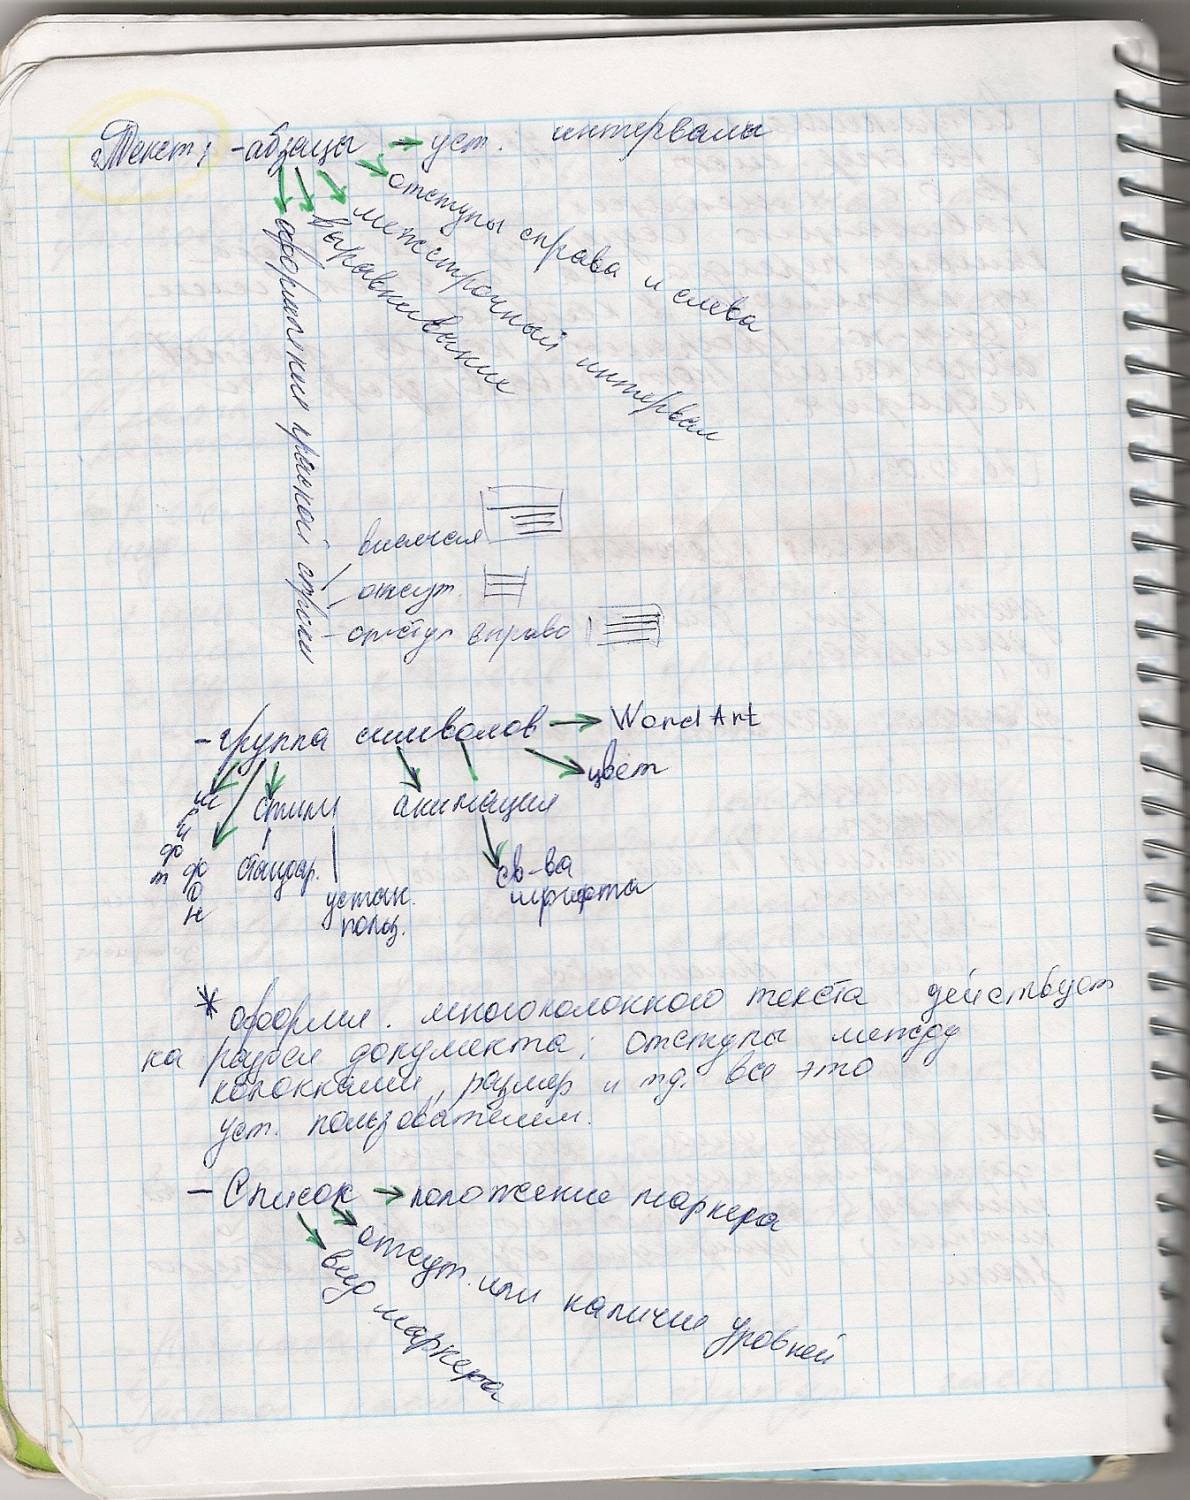 Текст: -абзацы → уст. интервалы
отступы справа и слева
межстрочный интервал
выравнивание
оформления красной строки
висячая
отсут.
отступ вправо
-группа символов → Word Art
цвет
шрифт
фон
стили
анимация
стандар.
устан.
польз.
св-ва
шрифта
* оформл. многоколонного текста действует
на раздел документа; отступы между
колонками, размер и тд. все это
уст. пользователем.
- Список → положение маркера
отсут. или наличие уровней
вид маркера